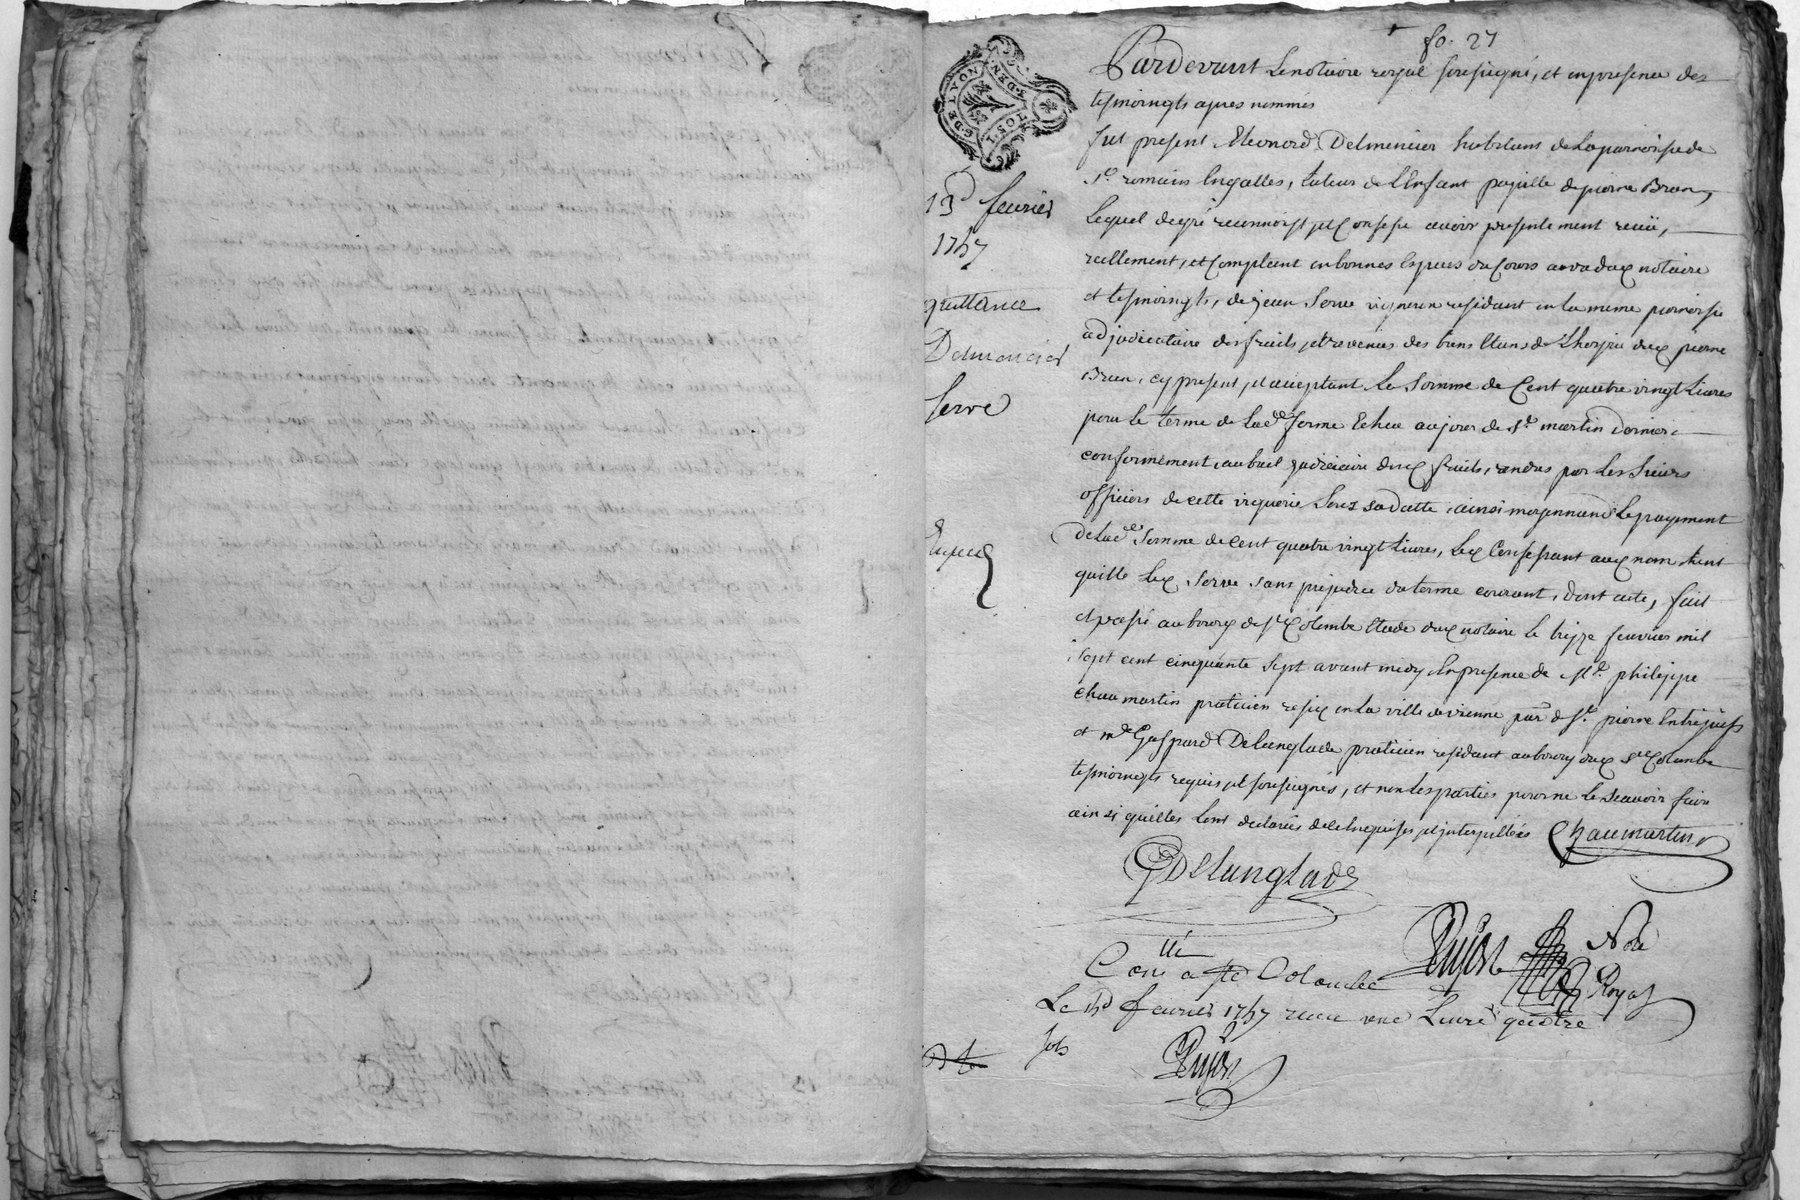 fo. 27
Pardevant Le notaire royal soussigné, et en presence des
tesmoingts apres nommés
fut present Eleonord Delmencier habitans de La parroisse de
St romain Engalles, tuteur de L'Enfant pupille de pierre Brun,
Lequel de gré reconnoist et Confesse avoir presentement receü,
reellement, et Comptant en bonnes Especes du Cours au vû dud notaire
et tesmoingts, de jean Serve vigneron residant en la meme parroisse
adjudicataire des fruits, et revenus des biens Etans de L'hoyrie dud pierre
Brun, cy present, et acceptant La Somme de Cent quatre vingt Livres
pour le terme de Lad ferme Echeu au jour de St martin dernier
conformement, au bail judiciaire desd fruits, randus par Les Sieurs
officiers de cette viguerie Sous sa datte, ainsi moyennand Le payement
de Lad Somme de cent quatre vingt Livres, Led Confessant aud nom tient
quitte Led Serve sans prejudice du terme courant, dont acte, fait
et passé au bourg de Ste Colombe Etude dud notaire le treize feuvrier mil
sept cent cinquante sept avant midy En presence de Me philippe
Chaumartin praticien resid en La ville de vienne parr de St pierre Entrejuifs
et me Gaspard Delanglade praticien residant au bourg dud Ste Colombe
tesmoingts requis et soussignés, et non Les parties pour ne le scavoir faire
ainsi qu'elles l'ont declarés de ce Enquises et interpellées Chaumartin
GDelanglade
13 fevrier
1757
quittance
Delmencier
Serve
Expedi
Pujos Nore
Royal
Con a Ste Colombe
Le 15 fevrier 1757 receu une Livre quatre
sols
Pujos